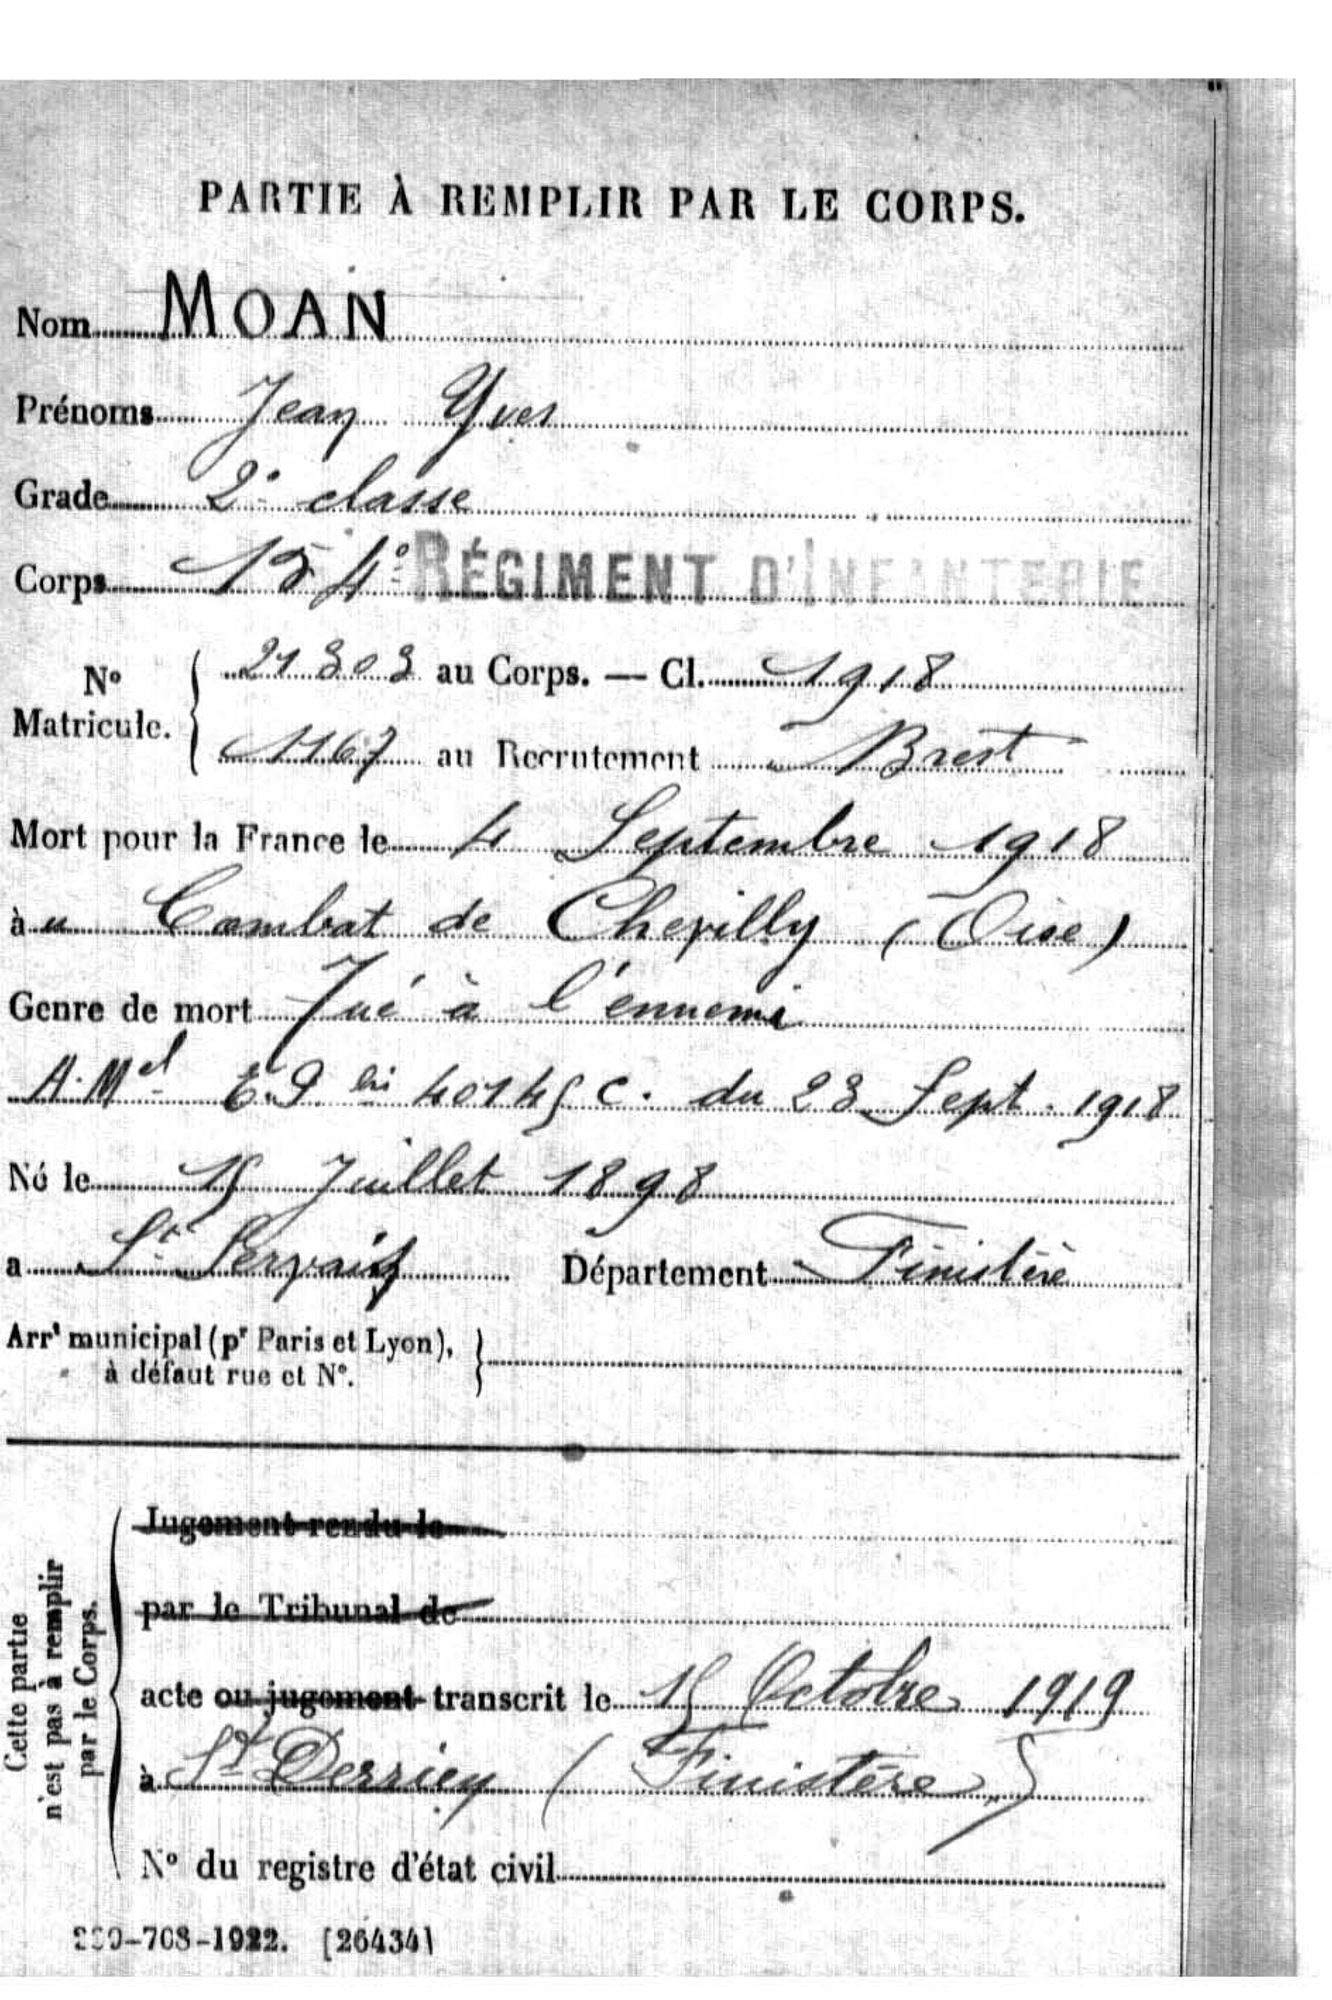 PARTIE À REMPLIR PAR LE CORPS.
Nom MOAN
Prénoms Jean Yves
Grade 2e classe
Corps 154e RÉGIMENT D'INFANTERIE
No Matricule. { 21303 au Corps. — Cl. 1918
1167 au Recrutement Brest
Mort pour la France le 4 Septembre 1918
à u Combat de Chevilly (Oise)
Genre de mort Tué à l'ennemi
A. Mel du 23 Sept. 1918
Né le 15 Juillet 1898
a St Servais Département Finistère
Arrt municipal (pr Paris et Lyon),
à défaut rue et No. }
Cette partie
n'est pas à remplir
par le Corps.
Jugement rendu le
par le Tribunal de
acte ou jugement transcrit le 15 Octobre 1919
à St Derrien (Finistère)
No du registre d'état civil
708-1922. [26434]